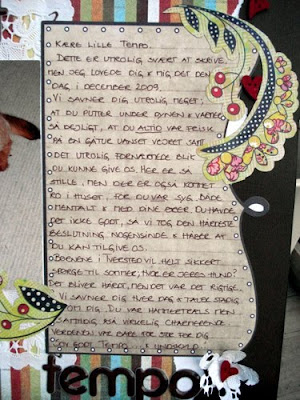 KÆRE LILLE TEMPO.
DETTE ER UTROLIG SVÆRT AT SKRIVE,
MEN JEG LOVEDE DIG & MIG DET DEN
DAG I DECEMBER 2009.
VI SAVNER DIG UTROLIG MEGET;
AT DU PUTTER UNDER DYNEN & VÆRTER
SÅ DEJLIGT, AT DU ALTID VAR FRISK
PÅ EN GÅTUR UANSET VEJRET SAMT
DET UTROLIG FORNÆRMEDE BLIK
DU KUNNE GIVE OS. HER ER SÅ
STILLE, MEN DER ER OGSÅ KOMMET
RO I HUSET, FOR DU VAR SYG BÅDE
MENTALT & MED DINE ØJER. DU HAVDE
DET IKKE GODT, SÅ VI TOG DEN HÅRDESTE
BESLUTNING NOGENSINDE & HÅBER AT
DU KAN TILGIVE OS.
BØRNENE I TVERSTED VIL HELT SIKKERT
SPØRGE TIL SOMMER, HVOR ER JERES HUND?
DET BLIVER HÅRDT, MEN DET VAR DET RIGTIGE.
VI SAVNER DIG HVER DAG & TALER STADIG
OM DIG. DU VAR HAMMERTRÆLS MEN
SAMTIDIG SÅ VIRKELIG CHARMERENDE.
VERDENEN VAR BARE FOR STOR FOR DIG
SOV GODT, TEMPO
tempo